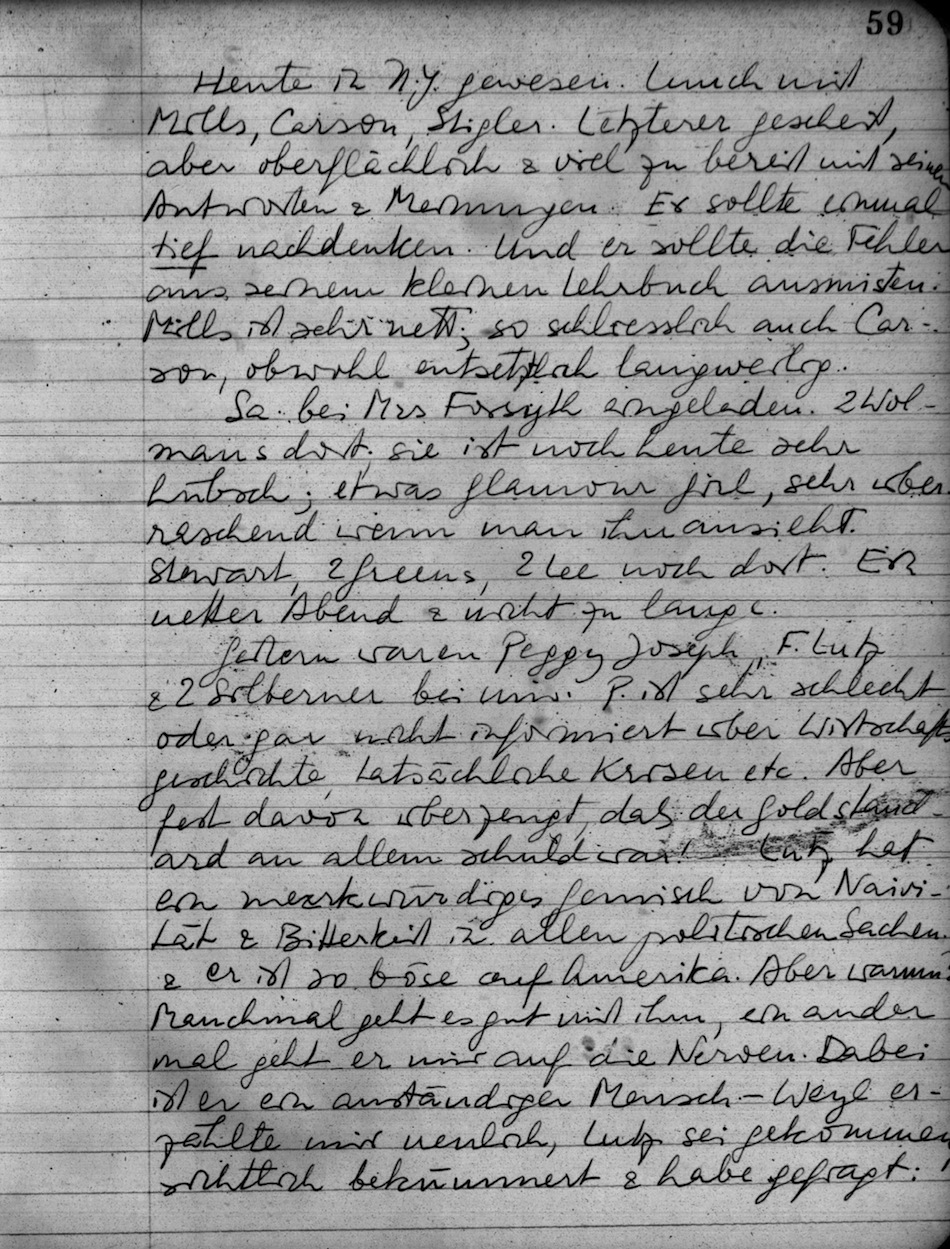 59
Heute in N.Y. gewesen. Lunch mit
Mills, Carson, Stigler. Letzterer gescheit,
aber oberflächlich & viel zu bereit mit seinen
Antworten & Meinungen. Er sollte einmal
tief nachdenken. Und er sollte die Fehler
aus seinem kleinen Lehrbuch ausmisten.
Mills ist sehr nett; so schliesslich auch Car-
son, obwohl entsetzlich langweilig.
Sa. bei Mrs Forsyth eingeladen. 2 Wol-
mans dort. sie ist noch heute sehr
hübsch; etwas glamour girl, sehr über
raschend wenn man ihn ansieht.
Stewart, 2 Greens, 2 Lee noch dort. Ein
netter Abend & nicht zu lange.
Gestern waren Peggy Joseph, F. Lutz
& 2 Silberner bei uns. P. ist sehr schlecht
oder gar nicht informiert über Wirtschafts
geschichte, tatsächliche Krisen etc. Aber
fest davon überzeugt, dass der Goldstand-
ard an allem schuld war! Lutz hat
ein merkwürdiges Gemisch von Naivi-
tät & Bitterkeit in allen politischen Sachen.
& er ist so böse auf Amerika. Aber warum?
Manchmal geht es gut mit ihm, ein ander
mal geht er mir auf die Nerven. Dabei
ist er ein anständiger Mensch – Weyl er-
zählte mir neulich, Lutz sei gekommen
sichtlich bekümmert & habe gefragt: